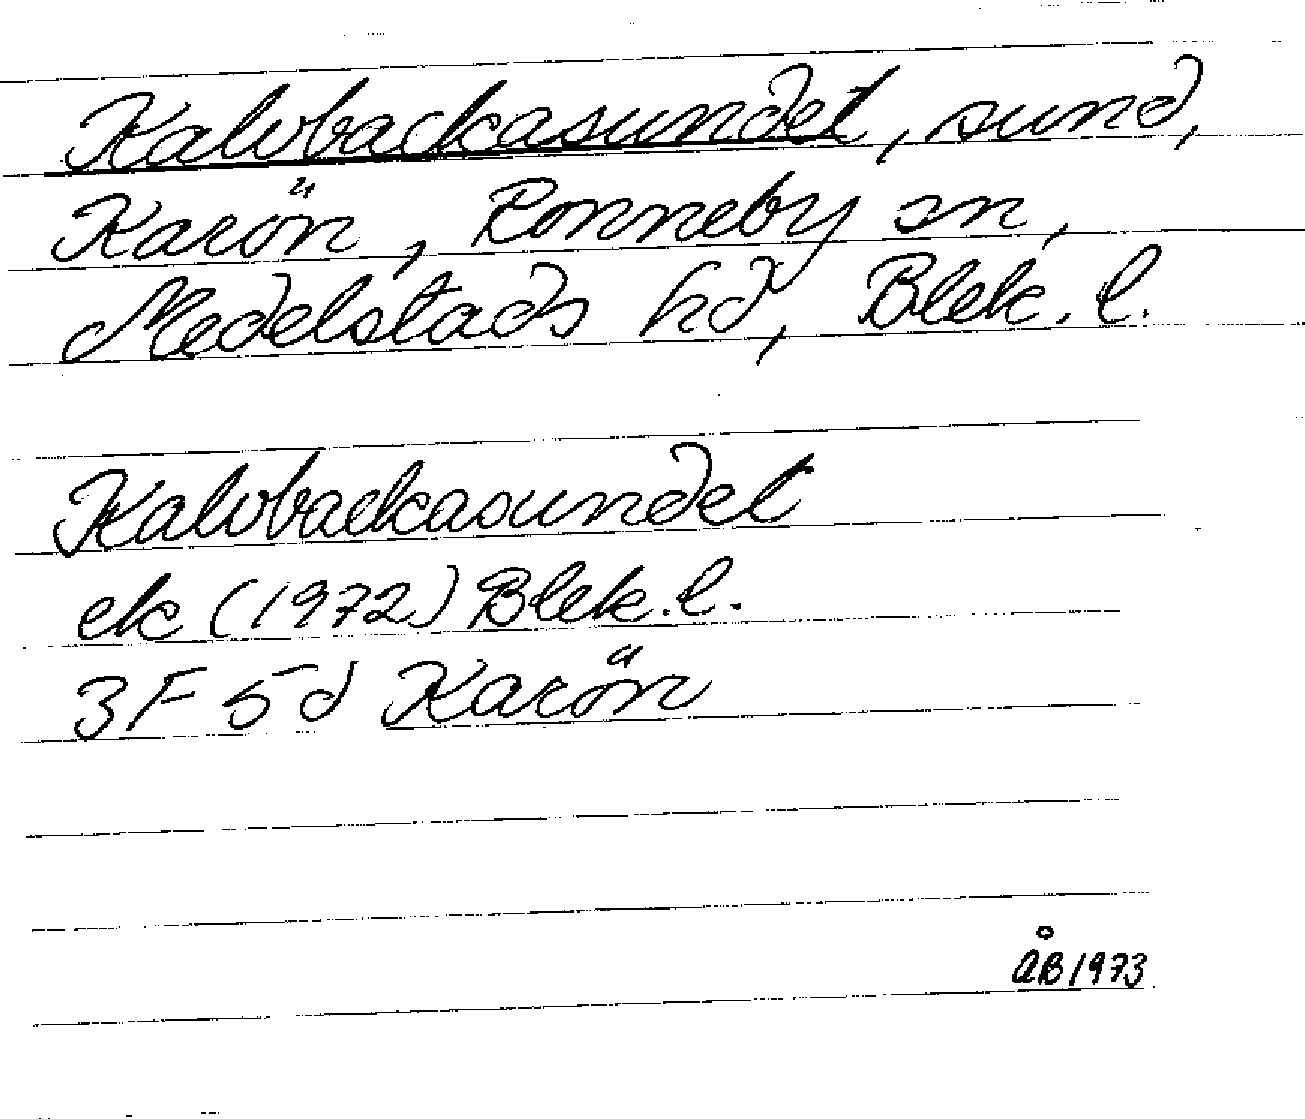 Kalvbackasundet, sund,
Karön, Ronneby sn,
Medelstads hd, Blek. l.
Kalvbackasundet
ek (1972) Blek. l.
3F 5d Karön
ÅB 1973